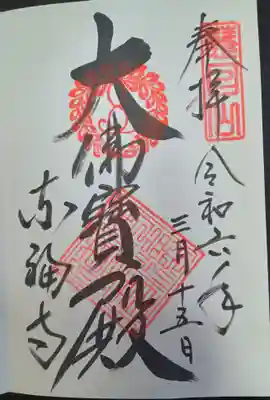 奉拝
令和六年
三月十五日
大佛寳殿
东福寺